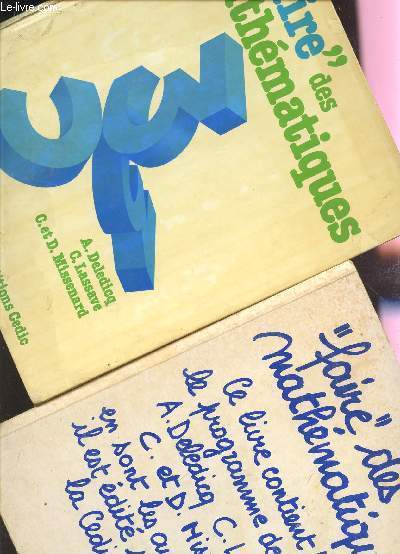 © Le-livre.com
ire” des
thématiques
A. Deledicq
C. Lassave
C. et D. Missenard
itions Cedic
"faire" des
mathématiqu
Ce livre contient
le programme de
A. Deledicq C. L
C. et D. Mis
en sont les au
il est édité
la Cedi